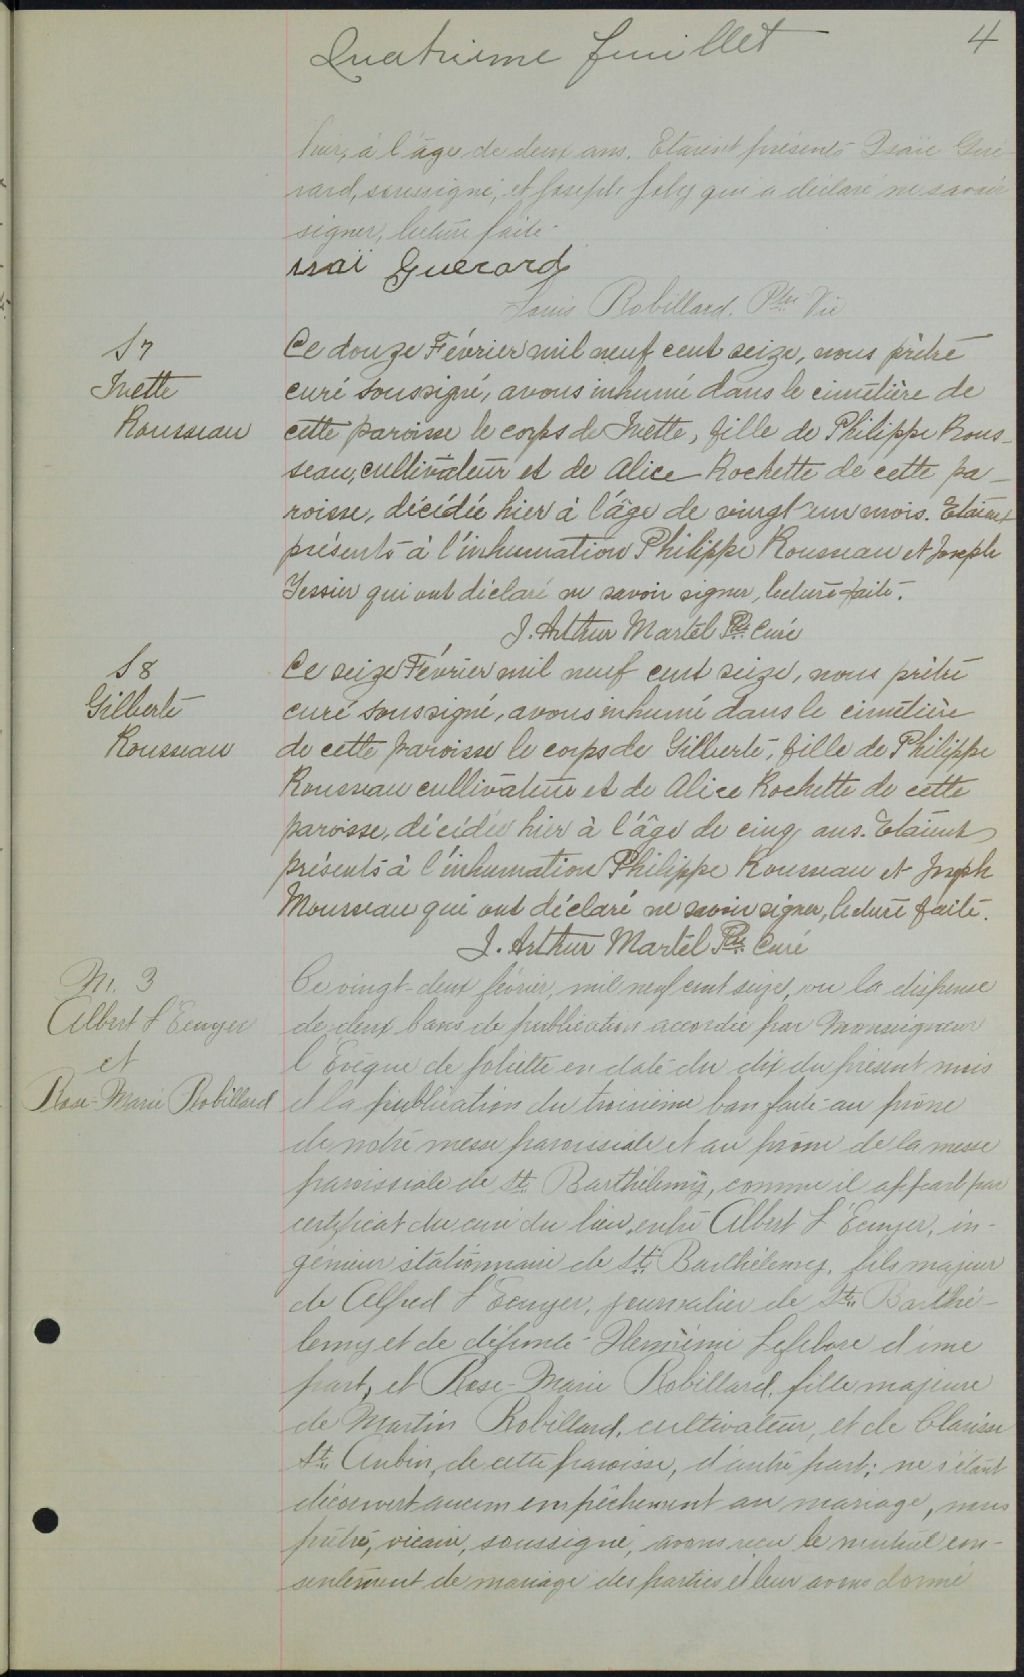 Quatrieme feuillet
4
hier, à l'âge de deux ans. Etaient présents Isaïe Gué
rard, soussigné, et Joseph Joly qui a déclaré ne savoir
signer, lecture faite.
isaï Guerard
Louis Robillard, Ptre Vic
S 7
Ivette
Rousseau
Ce douze Février mil neuf cent seize, nous prêtre
curé soussigné, avons inhumé dans le cimetière de
cette paroisse le corps de Ivette, fille de Philippe Rous-
seau, cultivateur et de Alice Rochette de cette pa-
roisse, décédée hier à l'âge de vingt un mois. Etaient
présents à l'inhumation Philippe Rousseau et Joseph
Tessier qui ont déclaré ne savoir signer, lecture faite.
J. Arthur Martel Ptre Curé
S 8
Gilberte
Rousseau
Ce seize Février mil neuf cent seize, nous prêtre
curé soussigné, avons inhumé dans le cimetière
de cette paroisse le corps de Gilberte, fille de Philippe
Rousseau cultivateur et de Alice Rochette de cette
paroisse, décédée hier à l'âge de cinq ans. Etaient
présents à l'inhumation Philippe Rousseau et Joseph
Mousseau qui ont déclaré ne savoir signer, lecture faite.
J. Arthur Martel Ptre Curé
M. 3
Albert L'Ecuyer
et
Rose-Marie Robillard
Ce vingt-deux février, mil neuf cent seize, vu la dispense
de deux bans de publication accordée par Monseigneur
l'Evêque de Joliette en date du dix du présent mois
et la publication du troisième ban faite au prône
de notre messe paroissiale et au prône de la messe
paroissiale de St. Barthélemy, comme il appert par
certificat du curé du lieu, entre Albert L'Ecuyer, in-
génieur stationnaire de St. Barthélemy, fils majeur
de Alfred L'Ecuyer, journalier de St. Barthé-
lemy et de défunte Herméine Lefebvre d'une
part, et Rose-Marie Robillard, fille majeure
de Martin Robillard, cultivateur, et de Clarisse
St. Aubin, de cette paroisse, d'autre part; ne s'étant
découvert aucun empêchement au mariage, nous
prêtre, vicaire, soussigné, avons reçu le mutuel con-
sentement de mariage des parties et leur avons donné